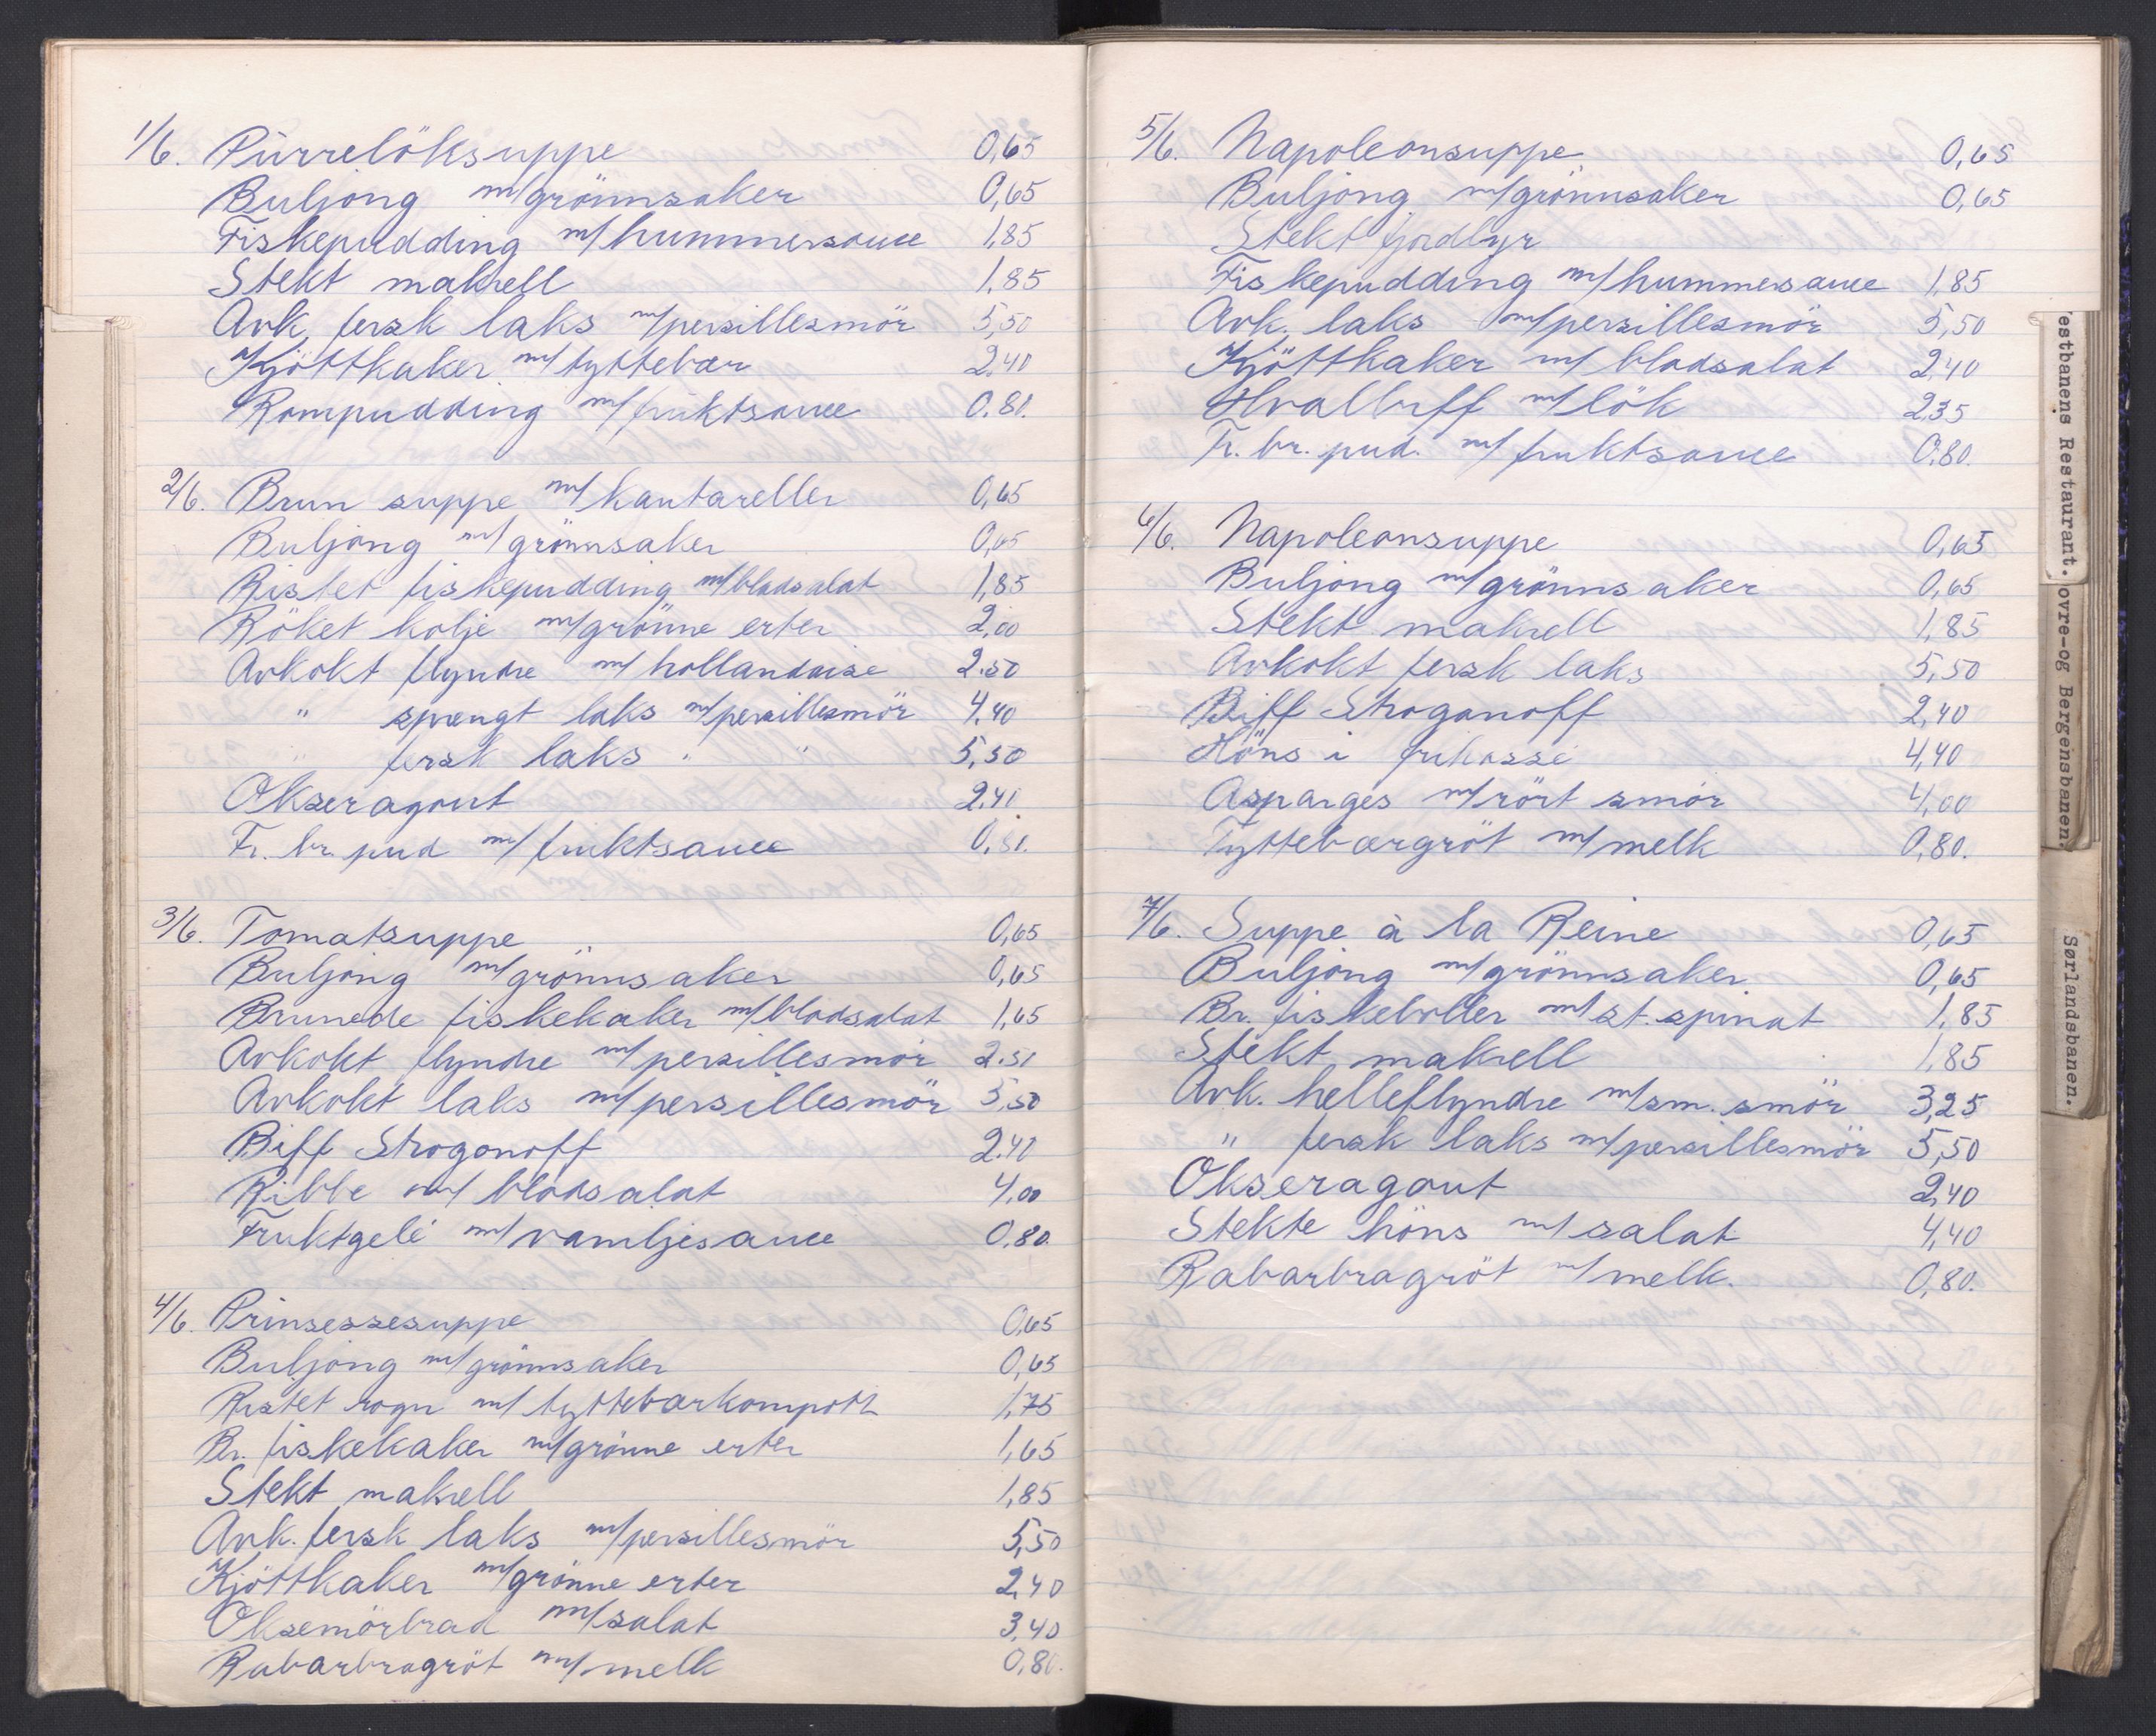 1/6. Pùrrelöksuppe 0,65
Buljong m/grönnsaker 0,65
Fiskepudding m/hummersauce 1,85
Stekt makrell 1,85
Avk. fersk laks m/persillesmör 5,50
Kjöttkaker m/tyttebær 2,40
Rompudding m/fruktsauce 0.80.
2/6. Brun suppe m/kantareller 0,65
Buljong m/grönnsaker 0,65
Ristet fiskepudding m/bladsalat 1,85
Röket kolje m/grönne erter 2,00
Avkokt flyndre m/hollandaise 2.50
" sprængt laks m/persillesmör 4,40
" fersk laks " " 5,50
Okseragout 2.40
Fr. br. pud m/fruktsauce 0,80.
3/6. Tomatsuppe 0,65
Buljong m/grönnsaker 0,65
Brunede fiskekaker m/bladsalat 1,65
Avkokt flyndre m/persillesmör 2.50
Avkokt laks m/persillesmör 5,50
Biff Strogonoff 2.40
Ribbe m/bladsalat 4,00
Fruktgelé m/vaniljesauce 0,80
4/6. Prinsessesuppe 0,65
Buljong m/grönnsaker 0,65
Ristet rogn m/tyttebærkompott 1,75
Br. fiskekaker m/grönne erter 1,65
Stekt makrell 1,85
Avk. fersk laks m/persillesmör 5,50
Kjöttkaker m/grönne erter 2,40
Oksemörbrad m/salat 3,40
Rabarbragröt m/melk 0,80.
5/6. Napoleonsuppe 0,65
Buljong m/grönnsaker 0,65
Stekt fjordlyr
Fiskepudding m/hummersauce 1,85
Avk. laks m/persillesmör 5,50
Kjöttkaker m/bladsalat 2,40
Hvalbiff m/lök 2,35
Fr. br. pud. m/fruktsauce 0.80.
6/6. Napoleonsuppe 0,65
Buljong m/grönnsaker 0,65
Stekt makrell 1,85
Avkokt fersk laks 5,50
Biff Stroganoff 2,40
Höns i frikassé 4,40
Asparges m/rört smör 4,00
Tyttebærgröt m/melk 0,80.
7/6. Suppe à la Reine 0,65
Buljong m/grönnsaker 0,65
Br. fiskeboller m/st. spinat 1,85
Stekt makrell 1,85
Avk. helleflyndre m/sm. smör 3,25
" fersk laks m/persillesmör 5,50
Okseragout 2,40
Stekte höns m/salat 4,40
Rabarbragröt m/melk. 0,80.
estbanens Restaurant.
ovre-og Bergensbanen.
Sørlandsbanen.